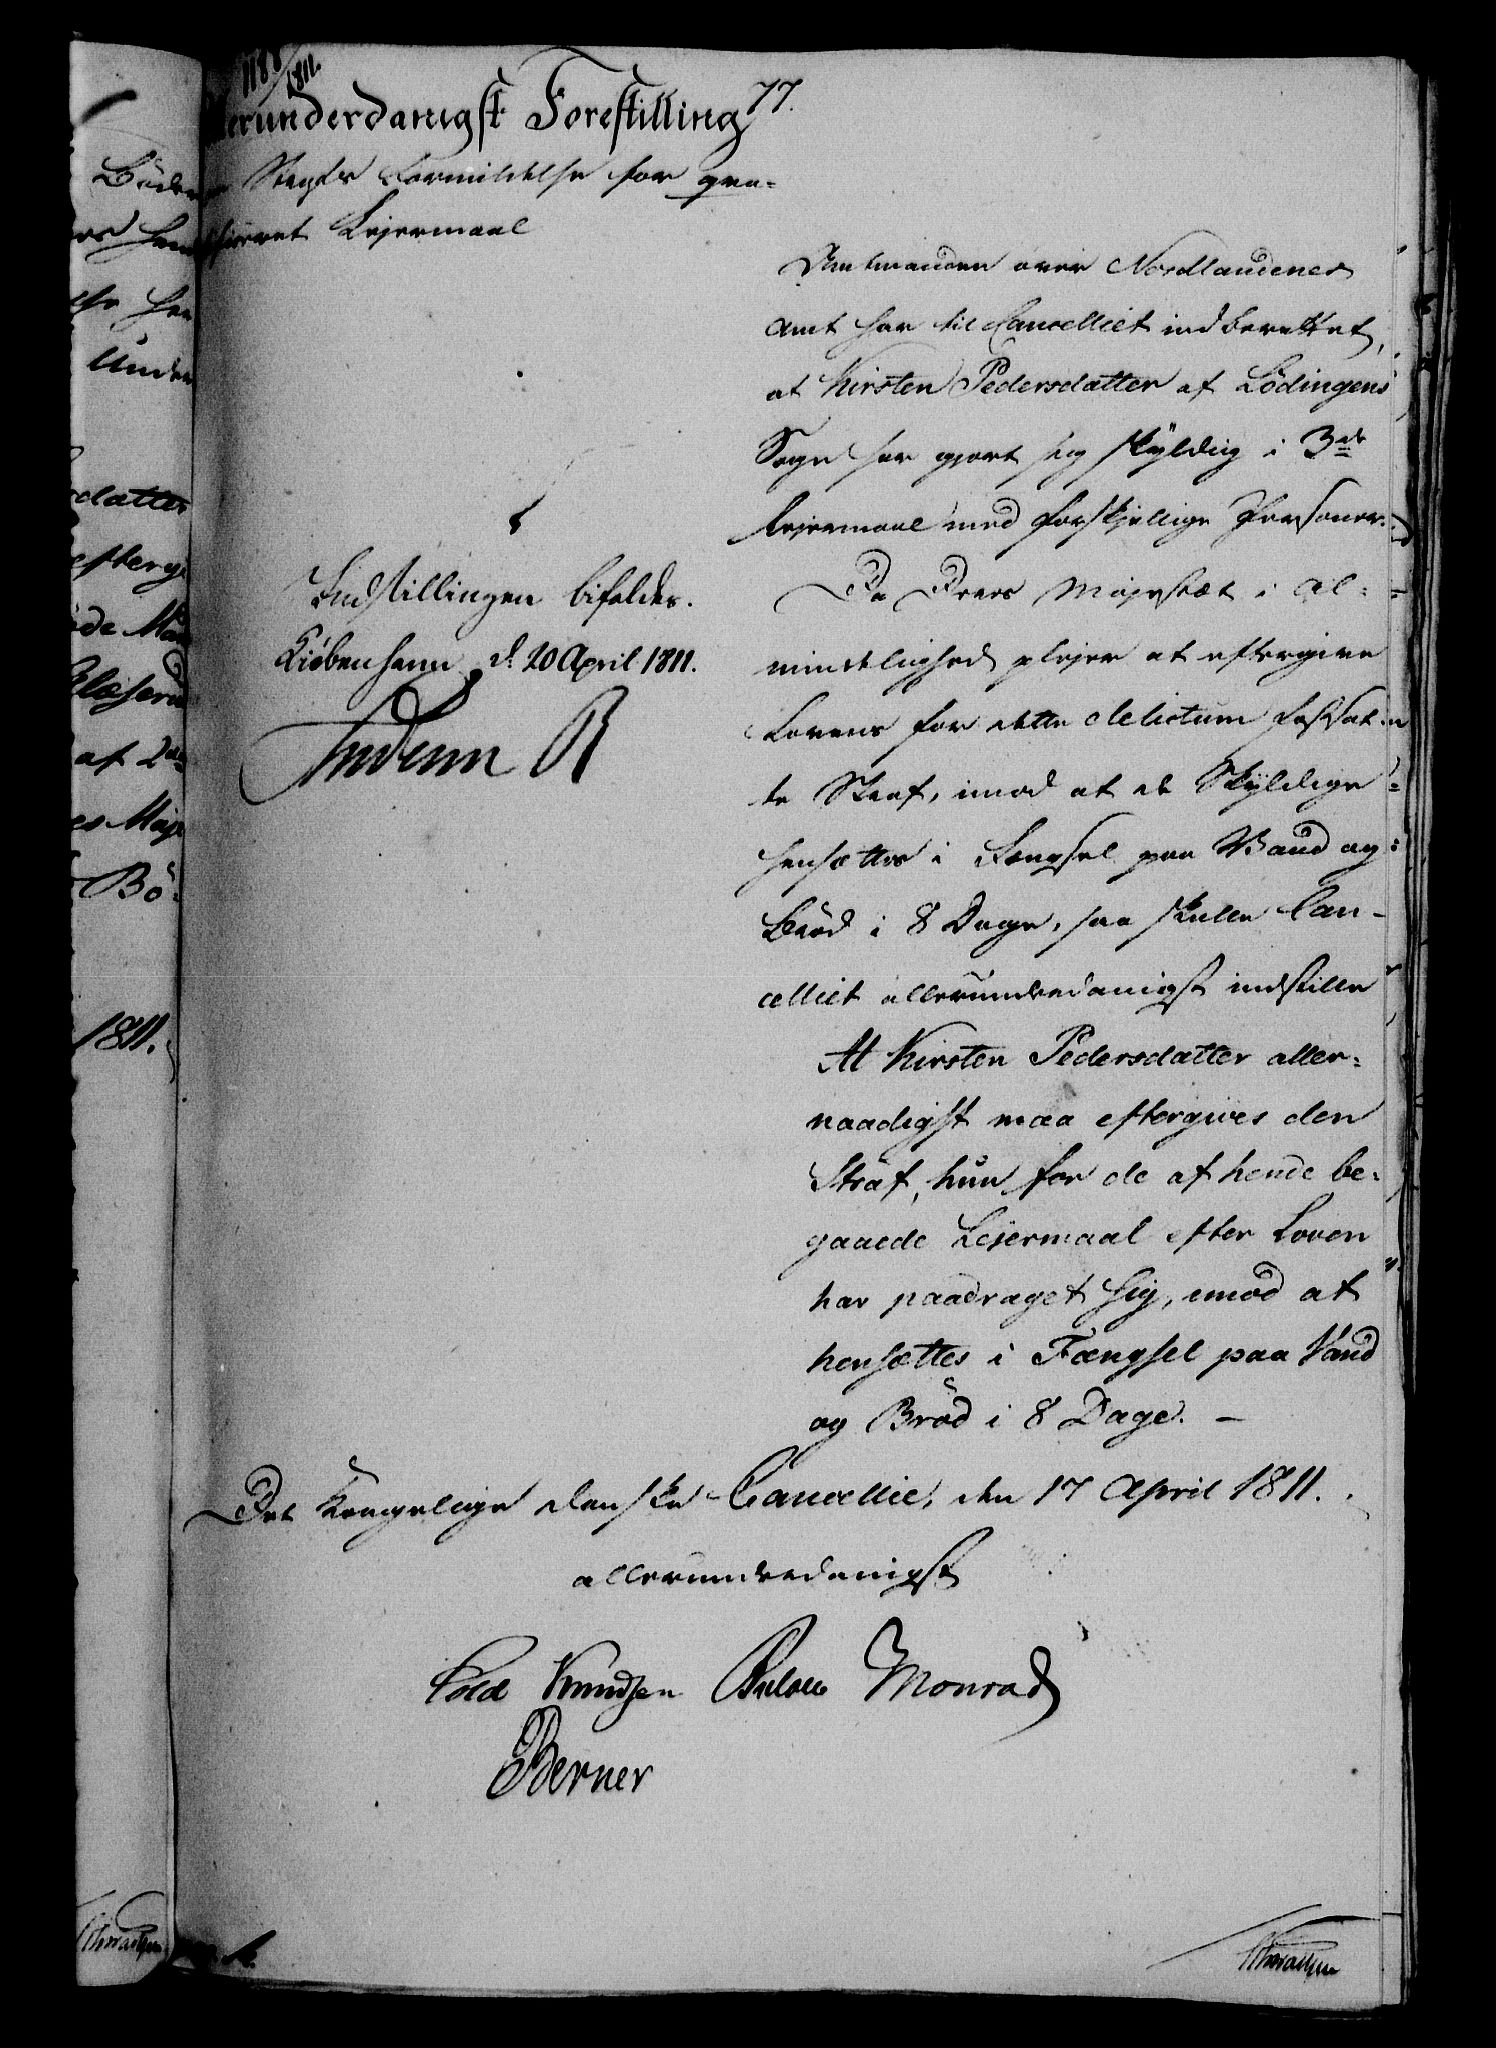 1188/1811.
77.
erunderdanigst Forestilling
Straffs Formildelse for qva-
lificeret Lejermaal
Amtmanden over Nordlandenes
Amt har til Cancelliet indberettet,
at Kirsten Pedersdatter af Lødingens
Sogn har gjort sig skyldig i 3de
Lejermaal med forskjellige Personer.
Da Deres Majestæt i Al-
mindelighed plejer at eftergive
Lovens for dette delictum fastsat-
te Straf, imod at de Skyldige
hensættes i Fængsel paa Vand og
Brød i 8 Dage, saa skulle Can-
celliet allerunderdanigst indstille
At Kirsten Pedersdatter aller-
naadigst maa eftergives den
Straf, hun for de af hende be-
gaaede Lejermaal efter Loven
har paadraget sig, imod at
hensættes i Fængsel paa Vand
og Brød i 8 Dage. –
Indstillingen bifaldes.
Kiøbenhavn d. 20 April 1811.
Frederik R
Det Kongelige danske Cancellie, den 17 April 1811.
allerunderdanigst
Cold Knudsen Bülow Monrad
Berner
Bøder
Under
datter
efterg
af 2de
es Maj
Bø-
1811.